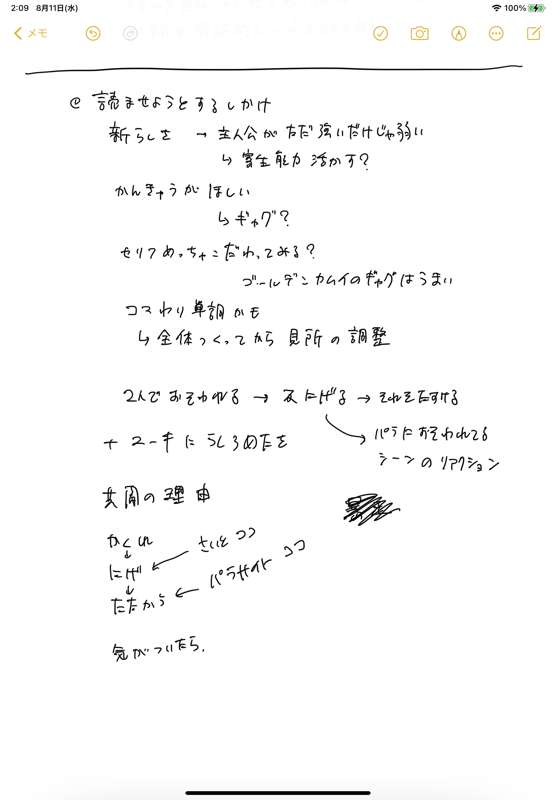 2:09 8月11日(水) 100%
メモ
@ 読ませようとするしかけ
新らしさ → 主人公がただ強いだけじゃ弱い
↳ 寄生能力 活かす?
かんきゅうがほしい
↳ ギャグ?
セリフめっちゃこだわってみる?
ゴールデンカムイのギャグはうまい
コマわり単調かも
↳ 全体つくってから 見所の調整
2人でおそわれる → 友にげる → それをたすける
パラにおそわれてる
シーンのリアクション
+ ユーキにうしろめたさ
共闘の理由
かくれ
↓
にげ ← さいと ココ
↓
たたかう ← パラサイト ココ
気がついたら.